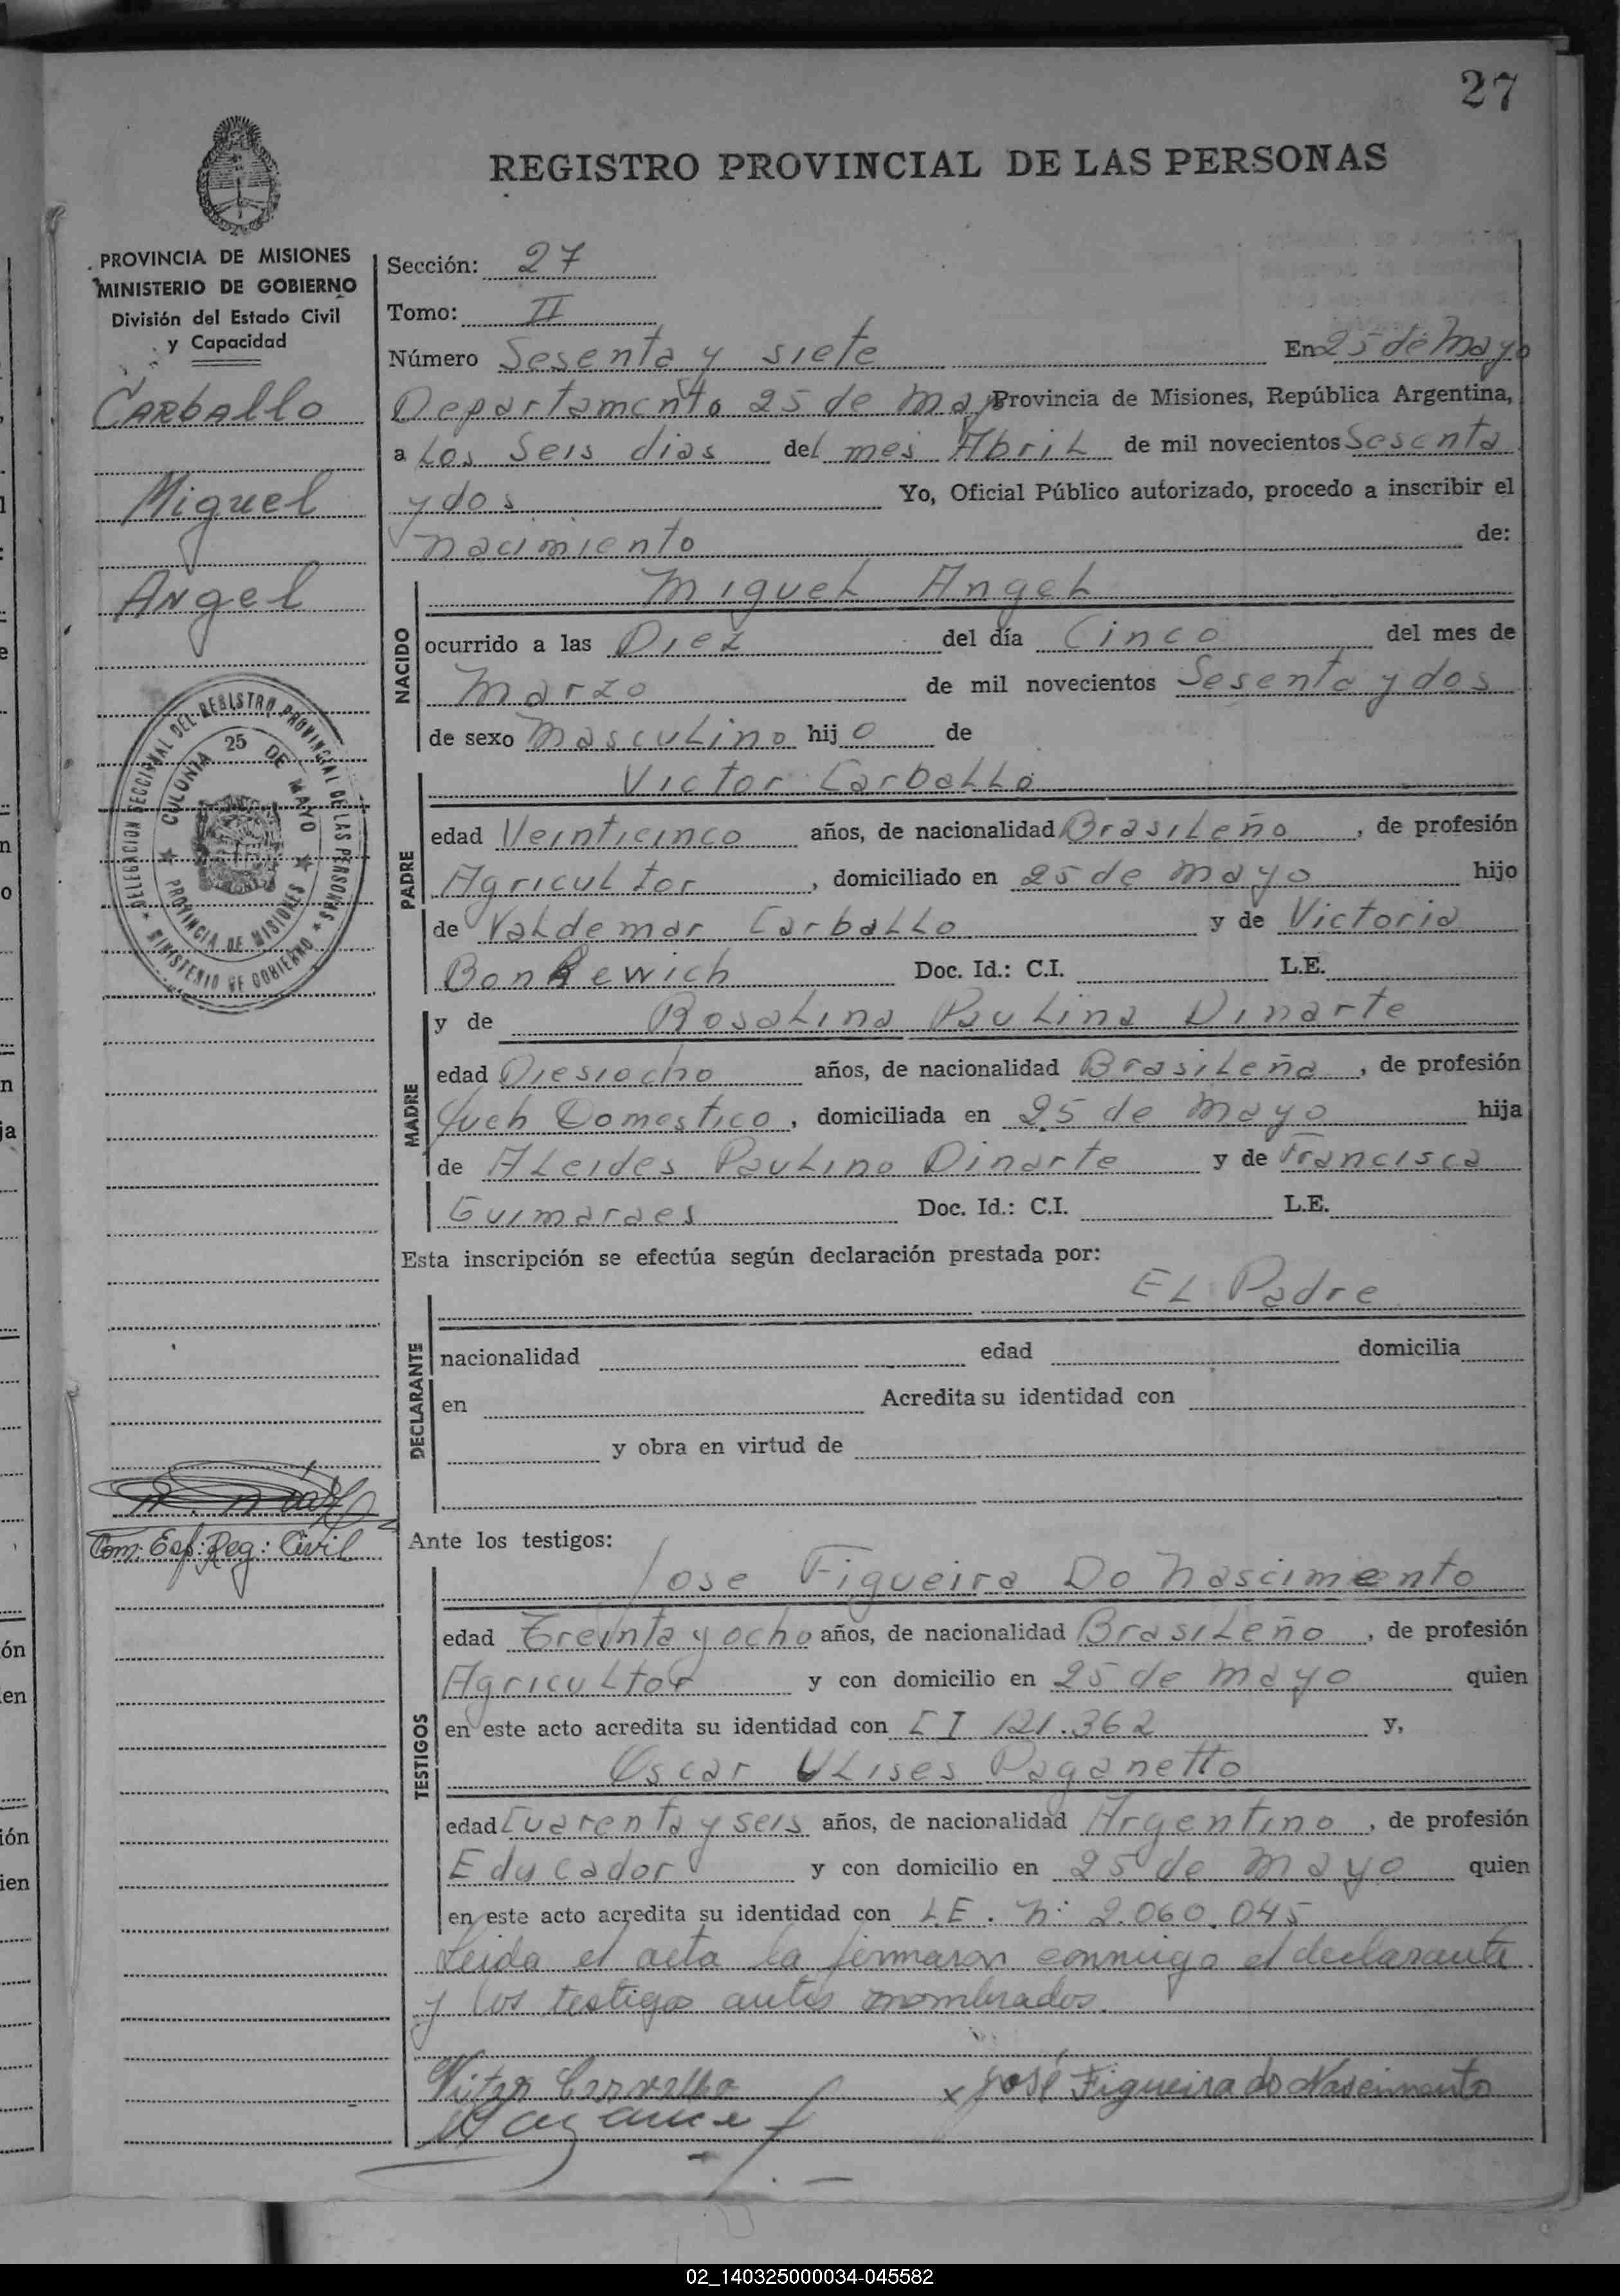 27
REGISTRO PROVINCIAL DE LAS PERSONAS
PROVINCIA DE MISIONES
MINISTERIO DE GOBIERNO
División del Estado Civil
y Capacidad
Carballo
Miguel
Angel
DELEGACION SECCIONAL DEL REGISTRO PROVINCIAL DE LAS PERSONAS
MINISTERIO DE GOBIERNO
COLONIA 25 DE MAYO
PROVINCIA DE MISIONES
Com: Esp: Reg: Civil
Sección: 27
Tomo: II
Número Sesenta y siete En 25 de Mayo
Departamento 25 de Mayo Provincia de Misiones, República Argentina,
a Los Seis dias del mes Abril de mil novecientos Sesenta
y dos Yo, Oficial Público autorizado, procedo a inscribir el
nacimiento de:
NACIDO
Miguel Angel
ocurrido a las Diez del día Cinco del mes de
Marzo de mil novecientos Sesenta y dos
de sexo Masculino hijo de
PADRE
Victor Carballo
edad Veinticinco años, de nacionalidad Brasileño, de profesión
Agricultor, domiciliado en 25 de mayo hijo
de Valdemar Carballo y de Victoria
Bonkewich Doc. Id.: C.I. L.E.
MADRE
y de Rosalina Paulina Dinarte
edad Diesiocho años, de nacionalidad Brasileña, de profesión
Queh Domestico, domiciliada en 25 de Mayo hija
de Aleides Paulino Dinarte y de Francisca
Guimaraes Doc. Id.: C.I. L.E.
Esta inscripción se efectúa según declaración prestada por:
DECLARANTE
El Padre
nacionalidad edad domicilia
en Acredita su identidad con
y obra en virtud de
Ante los testigos:
TESTIGOS
Jose Figueira Do Nascimento
edad Treinta y ocho años, de nacionalidad Brasileño, de profesión
Agricultor y con domicilio en 25 de mayo quien
en este acto acredita su identidad con CI 121.362 y,
Oscar Ulises Paganetto
edad Cuarenta y seis años, de nacionalidad Argentino, de profesión
Educador y con domicilio en 25 de Mayo quien
en este acto acredita su identidad con L.E. Nº 2.060.045
Leida el acta la firmaron conmigo el declarante
y los testigos antes nombrados.
Vitor Carvalho x José Figueira do Nascimento
02_140325000034-045582